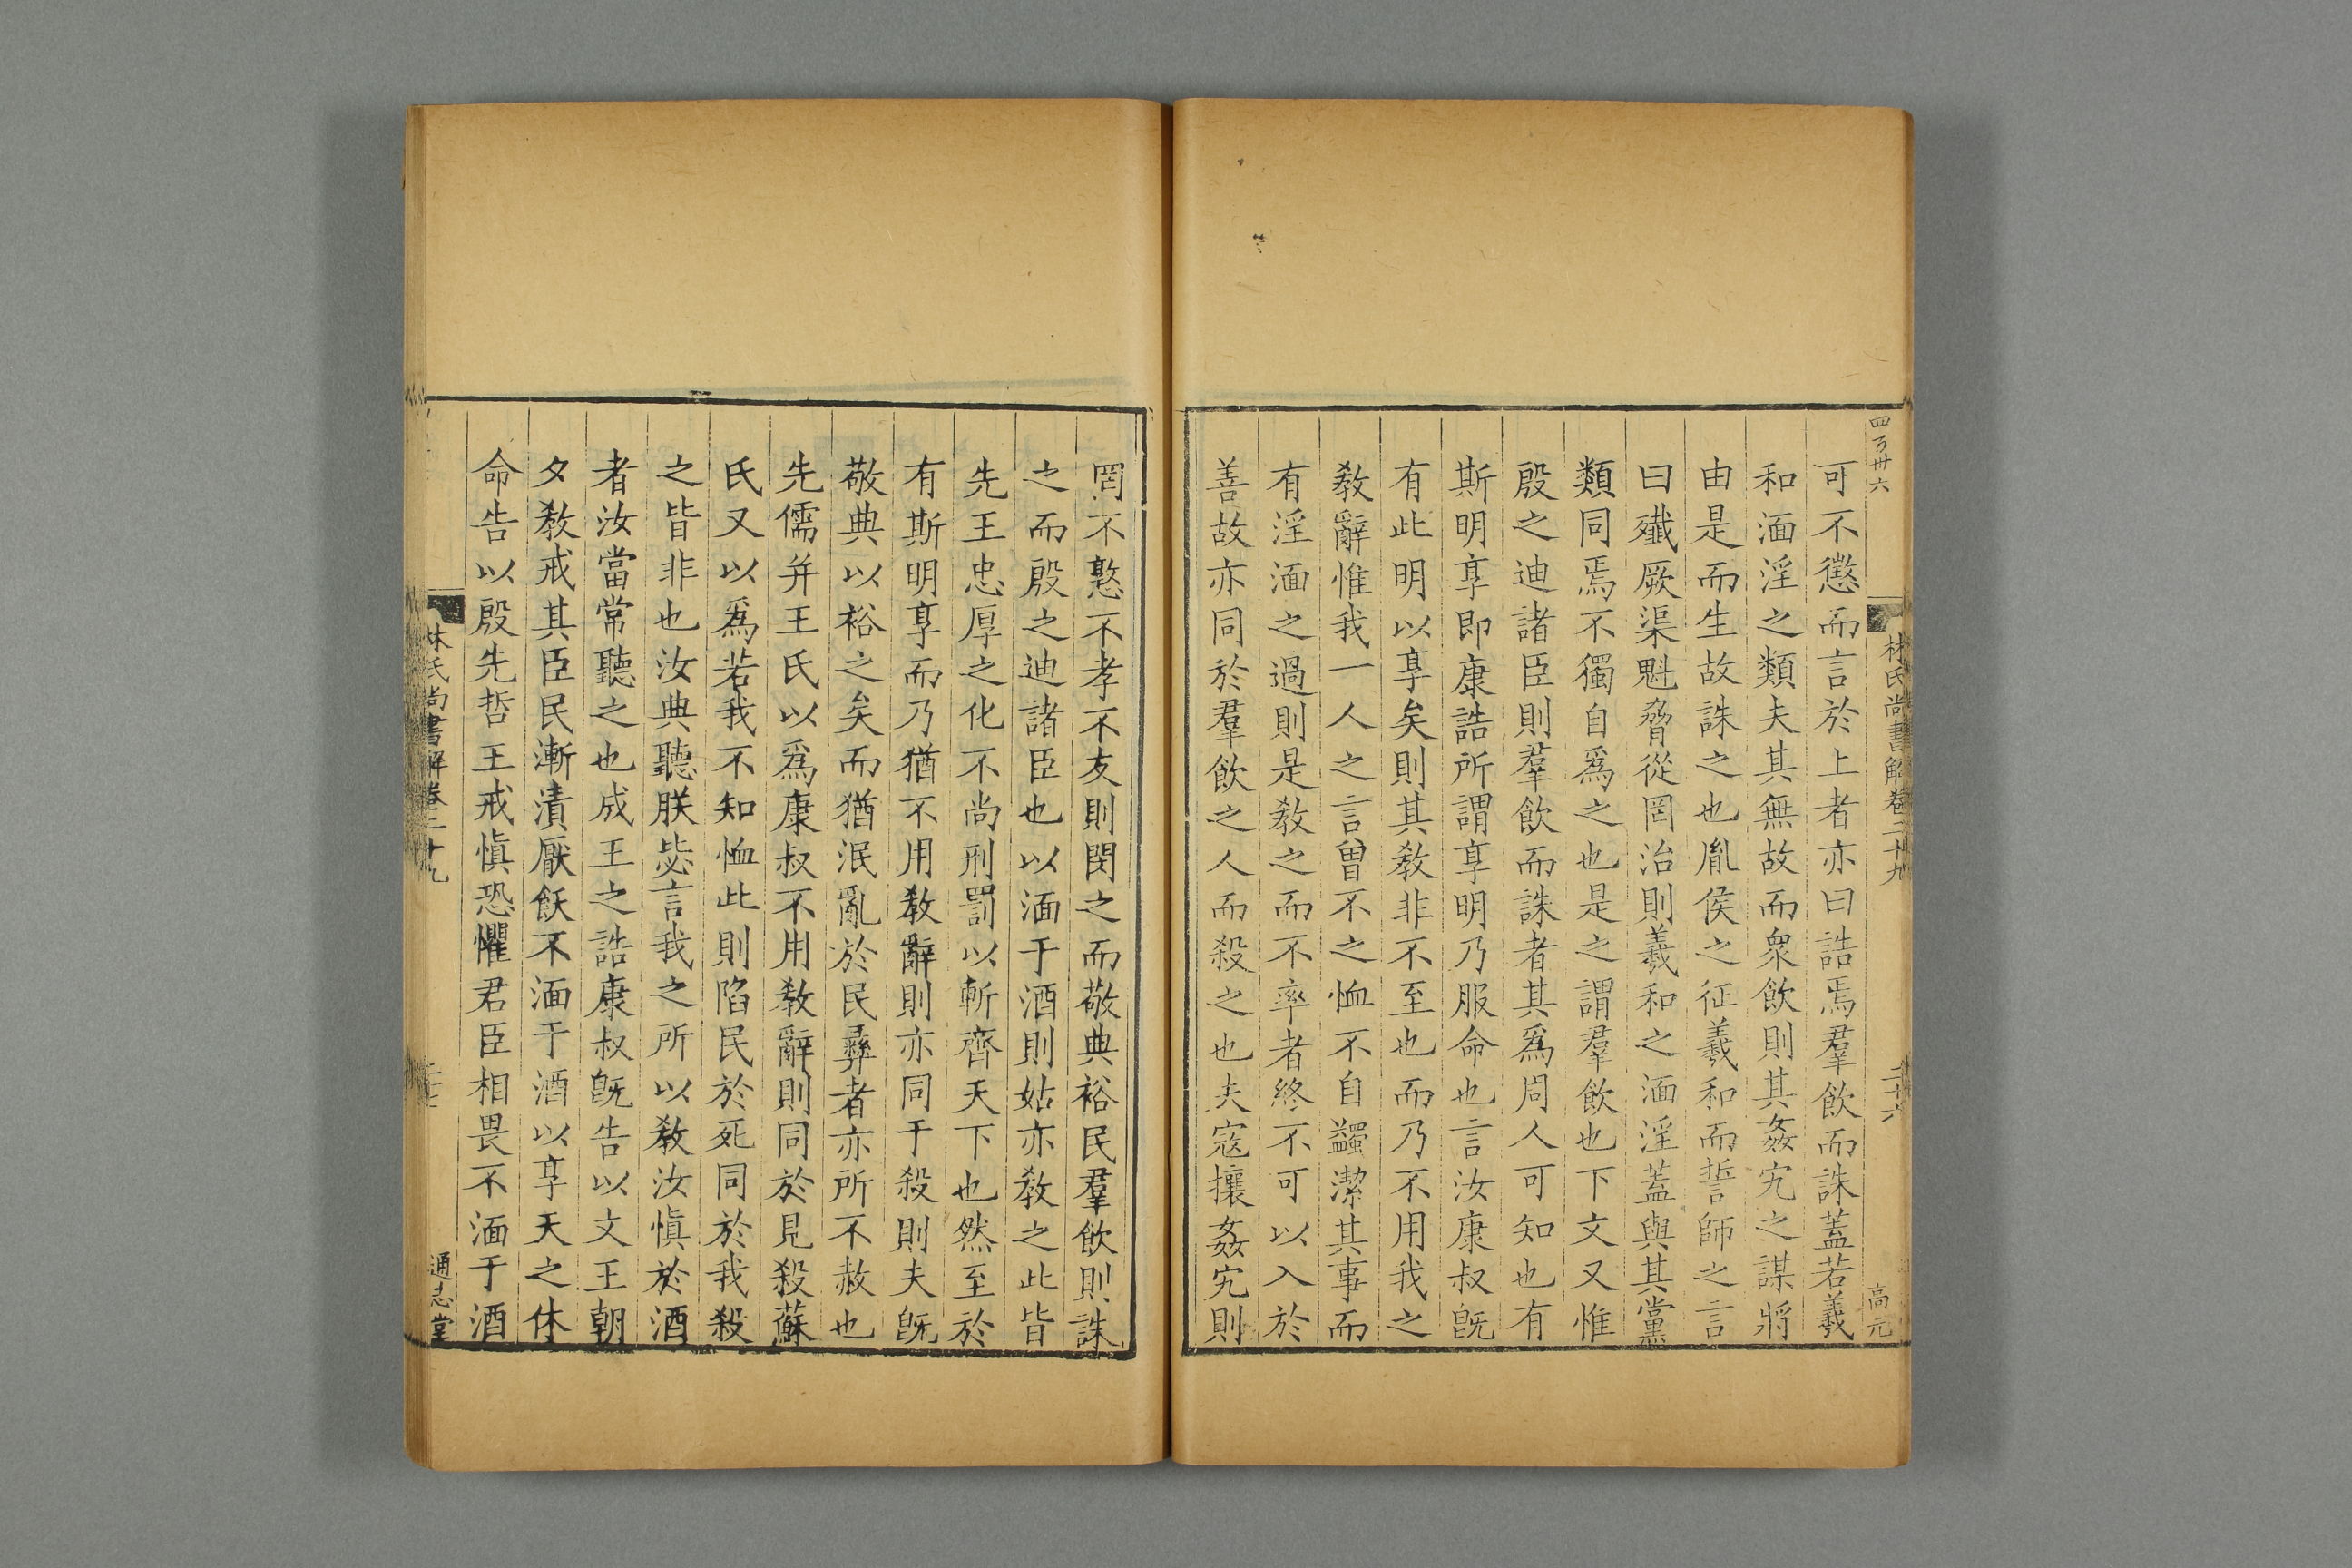 四百卅六
林氏尚書解卷二十九
二十六
高元
可不懲而言於上者亦曰誥焉羣飲而誅蓋若羲
和湎淫之類夫其無故而衆飲則其姦宄之謀將
由是而生故誅之也胤侯之征羲和而誓師之言
曰殲厥渠魁脅從罔治則羲和之湎淫蓋與其黨
類同焉不獨自爲之也是之謂羣飲也下文又惟
殷之迪諸臣則羣飲而誅者其爲周人可知也有
斯明享即康誥所謂享明乃服命也言汝康叔旣
有此明以享矣則其敎非不至也而乃不用我之
敎辭惟我一人之言曾不之恤不自蠲潔其事而
有淫湎之過則是敎之而不率者終不可以入於
善故亦同於羣飲之人而殺之也夫寇攘姦宄則
罔不憝不孝不友則閔之而敬典裕民羣飲則誅
之而殷之迪諸臣也以湎于酒則姑亦敎之此皆
先王忠厚之化不尚刑罰以斬齊天下也然至於
有斯明享而乃猶不用敎辭則亦同于殺則夫旣
敬典以裕之矣而猶泯亂於民彝者亦所不赦也
先儒并王氏以爲康叔不用敎辭則同於見殺蘇
氏又以爲若我不知恤此則陷民於死同於我殺
之皆非也汝典聽朕毖言我之所以敎汝愼於酒
者汝當常聽之也成王之誥康叔旣告以文王朝
夕敎戒其臣民漸漬厭飫不湎于酒以享天之休
命告以殷先哲王戒愼恐懼君臣相畏不湎于酒
林氏尚書解卷二十九
通志堂